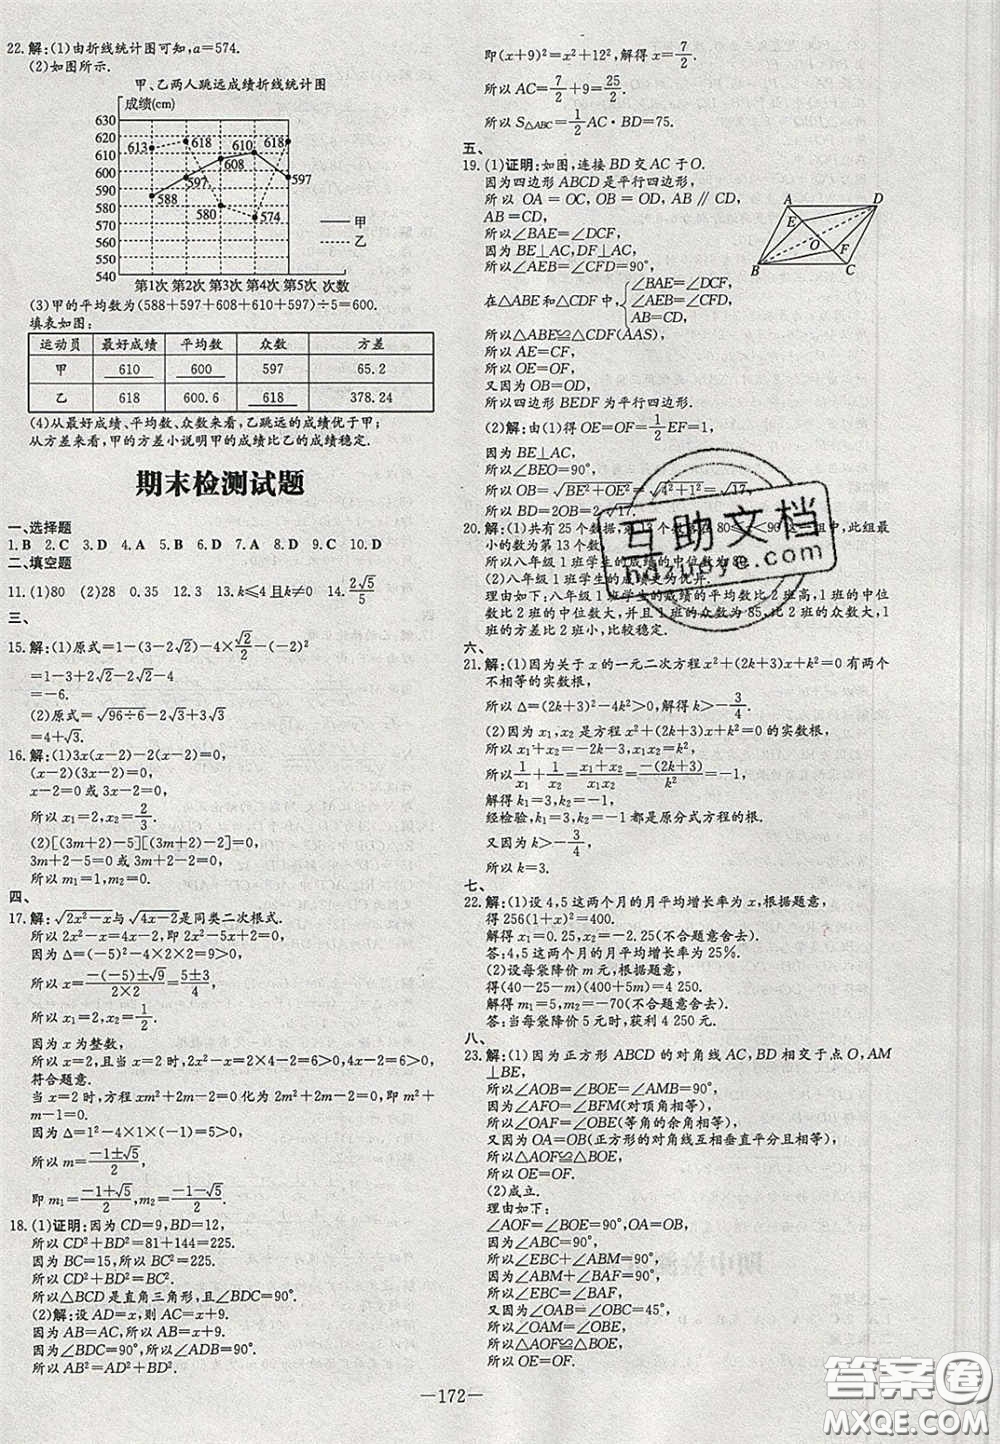 22.解:(1)由折线统计图可知,a=574.
(2)如图所示.
甲、乙两人跳远成绩折线统计图
成绩(cm)
630
620
610
600
590
580
570
560
550
540
613
618
610
618
608
597
597
588
580
574
甲
乙
第1次 第2次 第3次 第4次 第5次 次数
(3)甲的平均数为(588+597+608+610+597)÷5=600.
填表如图:
运动员 最好成绩 平均数 众数 方差
甲 610 600 597 65.2
乙 618 600.6 618 378.24
(4)从最好成绩、平均数、众数来看,乙跳远的成绩优于甲;
从方差来看,甲的方差小说明甲的成绩比乙的成绩稳定.
期末检测试题
一、选择题
1.B 2.C 3.D 4.A 5.B 6.D 7.B 8.D 9.C 10.D
二、填空题
11.(1)80 (2)28 0.35 12.3 13.k≤4且k≠0 14.2√5/5
三、
15.解:(1)原式=1-(3-2√2)-4×√2/2-(-2)²
=1-3+2√2-2√2-4
=-6.
(2)原式=√(96÷6)-2√3+3√3
=4+√3.
16.解:(1)3x(x-2)-2(x-2)=0,
(x-2)(3x-2)=0,
x-2=0或3x-2=0,
所以x₁=2,x₂=2/3.
(2)[(3m+2)-5][(3m+2)-2]=0,
3m+2-5=0或3m+2-2=0,
所以m₁=1,m₂=0.
四、
17.解:√(2x²-x)与√(4x-2)是同类二次根式.
所以2x²-x=4x-2,即2x²-5x+2=0.
因为Δ=(-5)²-4×2×2=9>0,
所以x=(-(-5)±√9)/(2×2)=(5±3)/4.
所以x₁=2,x₂=1/2.
因为x为整数.
所以x=2,且当x=2时,2x²-x=2×4-2=6>0,4x-2=6>0,
符合题意.
当x=2时,方程xm²+2m-2=0化为2m²+2m-2=0,即m²+
m-1=0.
因为Δ=1²-4×1×(-1)=5>0,
所以m=(-1±√5)/2,
即m₁=(-1+√5)/2,m₂=(-1-√5)/2.
18.(1)证明:因为CD=9,BD=12,
所以CD²+BD²=81+144=225.
因为BC=15,所以BC²=225.
所以CD²+BD²=BC².
所以△BCD是直角三角形,且∠BDC=90°.
(2)解:设AD=x,则AC=x+9.
因为AB=AC,所以AB=x+9.
因为∠BDC=90°,所以∠ADB=90°.
所以AB²=AD²+BD²,
即(x+9)²=x²+12²,解得x=7/2.
所以AC=7/2+9=25/2.
所以S△ABC=1/2AC·BD=75.
五、
19.(1)证明:如图,连接BD交AC于O.
因为四边形ABCD是平行四边形,
所以OA=OC,OB=OD,AB∥CD,
AB=CD,
所以∠BAE=∠DCF.
因为BE⊥AC,DF⊥AC,
所以∠AEB=∠CFD=90°,
在△ABE和△CDF中,{∠BAE=∠DCF,
∠AEB=∠CFD,
AB=CD,
A D E O F B C
所以△ABE≌△CDF(AAS),
所以AE=CF,
所以OE=OF,
又因为OB=OD,
所以四边形BEDF为平行四边形.
(2)解:由(1)得OE=OF=1/2EF=1,
因为BE⊥AC,
所以∠BEO=90°,
所以OB=√(BE²+OE²)=√(4²+1²)=√17,
所以BD=2OB=2√17.
20.解:(1)共有25个数据,第13个数落在80≤x<90这一组中,此组最
小的数为第13个数,
所以八年级1班学生的成绩的中位数为80.
(2)八年级1班学生的成绩更为优异.
理由如下:八年级1班学生的成绩的平均数比2班高,1班的中位
数比2班的中位数大,并且1班的众数为85,比2班的众数大,1
班的方差比2班小,比较稳定.
六、
21.解:(1)因为关于x的一元二次方程x²+(2k+3)x+k²=0有两个
不相等的实数根,
所以Δ=(2k+3)²-4k²>0,解得k>-3/4.
(2)因为x₁,x₂是方程x²+(2k+3)x+k²=0的实数根,
所以x₁+x₂=-2k-3,x₁x₂=k²,
所以1/x₁+1/x₂=(x₁+x₂)/(x₁x₂)=-(2k+3)/k²=-1,
解得k₁=3,k₂=-1,
经检验,k₁=3,k₂=-1都是原分式方程的根.
又因为k>-3/4,
所以k=3.
七、
22.解:(1)设4,5这两个月的月平均增长率为x,根据题意,
得256(1+x)²=400.
解得x₁=0.25,x₂=-2.25(不合题意舍去).
答:4,5这两个月的月平均增长率为25%.
(2)设每袋降价m元,根据题意,
得(40-25-m)(400+5m)=4 250.
解得m₁=5,m₂=-70(不合题意舍去).
答:当每袋降价5元时,获利4 250元.
八、
23.解:(1)因为正方形ABCD的对角线AC,BD相交于点O,AM
⊥BE,
所以∠AOB=∠BOE=∠AMB=90°,
因为∠AFO=∠BFM(对顶角相等),
所以∠OAF=∠OBE(等角的余角相等),
又因为OA=OB(正方形的对角线互相垂直平分且相等),
所以△AOF≌△BOE,
所以OE=OF.
(2)成立.
理由如下:
∠AOF=∠BOE=90°,OA=OB,
所以∠EBC+∠ABM=90°,
因为∠ABM+∠BAF=90°,
所以∠EBC=∠BAF,
又因为∠OAB=∠OBC=45°,
所以∠OAM=∠OBE,
所以△AOF≌△BOE,
所以OE=OF.
—172—
互助文档
hdzuoye.com
答案圈
MXQE.COM